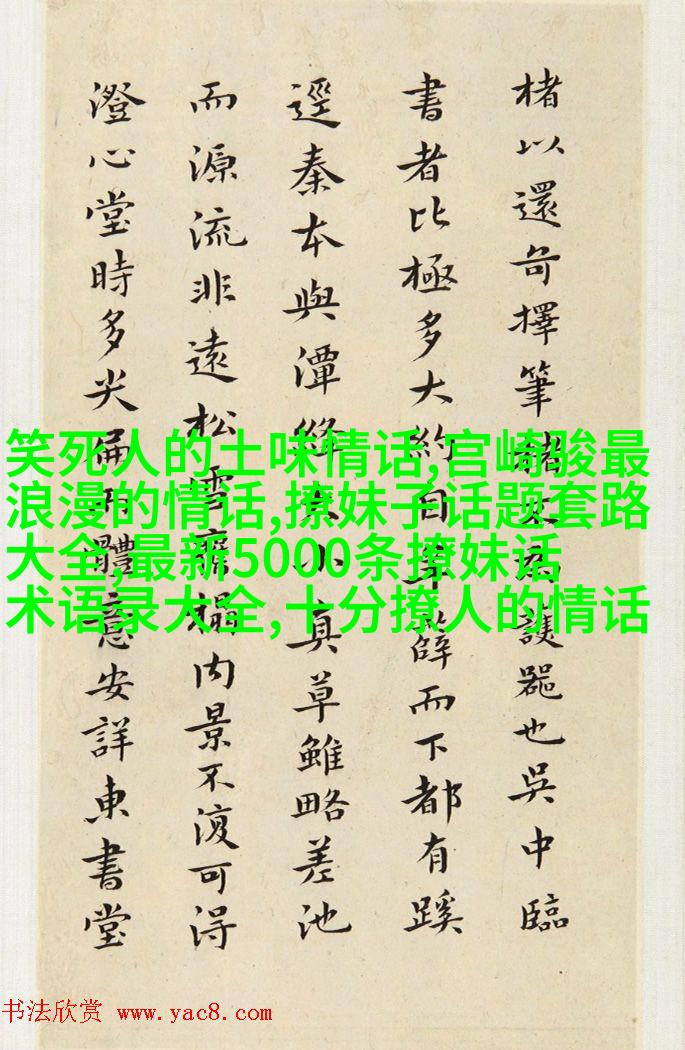 楮以還奇擇筆護噐也吳中臨
書者比極多大約自薛而下都有蹊
逕秦本與潭絳大小真草雖略差池
而源流非遠松雪齋榻内景不復可得
澄心堂時多尖扁而體意安詳東書堂
笑死人的土味情话,宫崎骏最
浪漫的情话,撩妹子话题套路
大全,最新5000条撩妹话
术语录大全,十分撩人的情话
书法欣赏 www.yac8.com